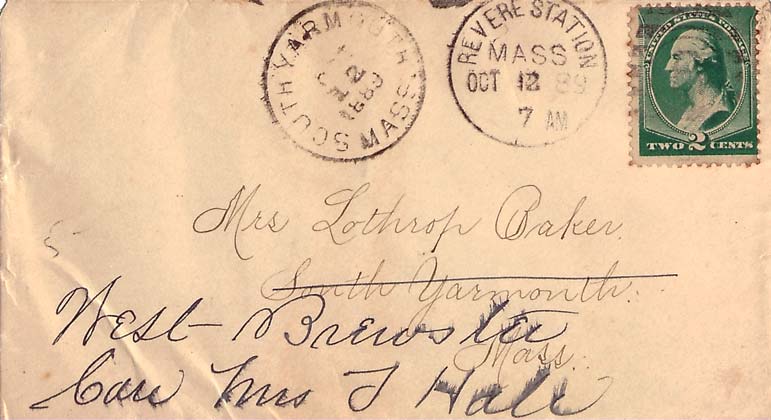 SOUTH YARMOUTH MASS
12
1889
REVERE STATION
MASS
OCT 12 89
7 AM
UNITED STATES POSTAGE
TWO 2 CENTS
Mrs Lothrop Baker.
South Yarmouth.
West Brewster
Mass.
Care Mrs T Hall